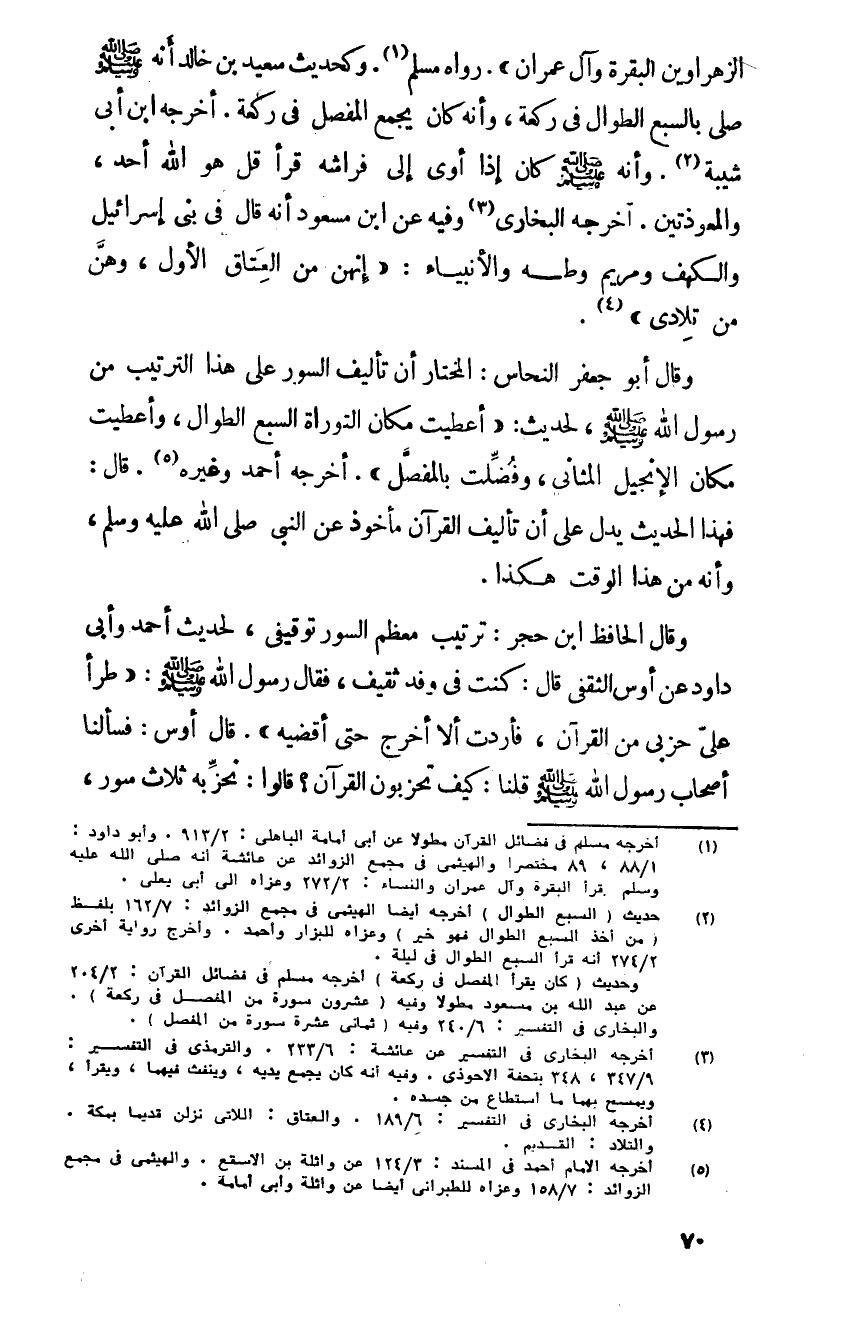 الزهراوين البقرة وآل عمران » . رواه مسلم(١) . وكحديث سعيد بن خالد أنه ﷺ
صلى بالسبع الطوال فى ركعة ، وأنه كان يجمع المفصل فى ركعة . أخرجه ابن أبى
شيبة(٢) . وأنه ﷺ كان إذا أوى إلى فراشه قرأ قل هو الله أحد ،
والمعوذتين . أخرجه البخارى(٣) وفيه عن ابن مسعود أنه قال فى بنى إسرائيل
والكهف ومريم وطه والأنبياء : « إنهن من العِتَاق الأول ، وهنَّ
من تِلادى »(٤) .
وقال أبو جعفر النحاس : المختار أن تأليف السور على هذا الترتيب من
رسول الله ﷺ ، لحديث: « أعطيت مكان التوراة السبع الطوال ، وأعطيت
مكان الإنجيل المثانى ، وفُضِّلت بالمفصَّل » . أخرجه أحمد وغيره(٥) . قال :
فهذا الحديث يدل على أن تأليف القرآن مأخوذ عن النبى صلى الله عليه وسلم ،
وأنه من هذا الوقت هكذا .
وقال الحافظ ابن حجر : ترتيب معظم السور توقيفى ، لحديث أحمد وأبى
داود عن أوس الثقفى قال : كنت فى وفد ثقيف ، فقال رسول الله ﷺ : « طرأ
علىّ حزبى من القرآن ، فأردت ألا أخرج حتى أقضيه » . قال أوس : فسألنا
أصحاب رسول الله ﷺ قلنا : كيف تحزبون القرآن ؟ قالوا : نحزِّبه ثلاث سور ،
(١) أخرجه مسلم فى فضائل القرآن مطولا عن أبى أمامة الباهلى : ٩١٣/٢ . وأبو داود :
٨٨/١ ، ٨٩ مختصرا والهيثمى فى مجمع الزوائد عن عائشة أنه صلى الله عليه
وسلم يقرأ البقرة وآل عمران والنساء : ٢٧٢/٢ وعزاه الى أبى يعلى .
(٢) حديث ( السبع الطوال ) أخرجه أيضا الهيثمى فى مجمع الزوائد : ١٦٢/٧ بلفظ
( من أخذ السبع الطوال فهو خير ) وعزاه للبزار وأحمد . وأخرج رواية أخرى
٢٧٤/٢ أنه قرأ السبع الطوال فى ليلة .
وحديث ( كان يقرأ المفصل فى ركعة ) أخرجه مسلم فى فضائل القرآن : ٢٠٤/٢
عن عبد الله بن مسعود مطولا وفيه ( عشرون سورة من المفصل فى ركعة ) .
والبخارى فى التفسير : ٢٤٠/٦ وفيه ( ثمانى عشرة سورة من المفصل ) .
(٣) أخرجه البخارى فى التفسير عن عائشة : ٢٣٣/٦ . والترمذى فى التفسير :
٣٤٧/٩ ، ٣٤٨ بتحفة الاحوذى . وفيه أنه كان يجمع يديه ، وينفث فيهما ، ويقرأ ،
ويمسح بهما ما استطاع من جسده .
(٤) أخرجه البخارى فى التفسير : ١٨٩/٦ . والعتاق : اللاتى نزلن قديما بمكة .
والتلاد : القديم .
(٥) أخرجه الامام أحمد فى المسند : ١٢٤/٣ عن واثلة بن الاسقع . والهيثمى فى مجمع
الزوائد : ١٥٨/٧ وعزاه للطبرانى أيضا عن واثلة وأبى أمامة .
٧٠